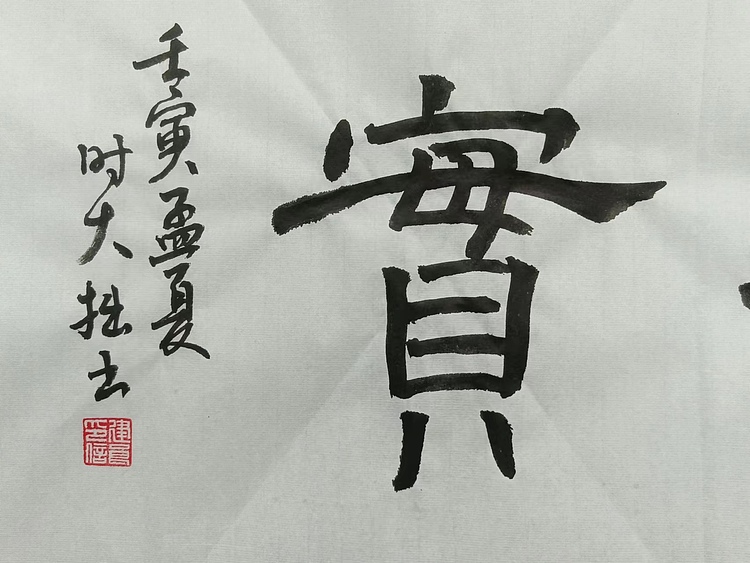 實
壬寅孟夏
时大拙书